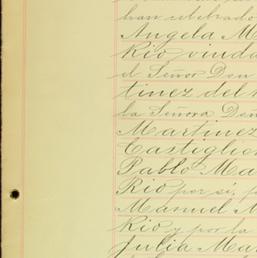 han celebrado
Angela M
Rio viuda
el Señor Don
tinez del
la Señora Do
Martinez
Castiglio
Pablo Ma
Rio por sí,
Manuel M
Rio y por la
Julia Mar